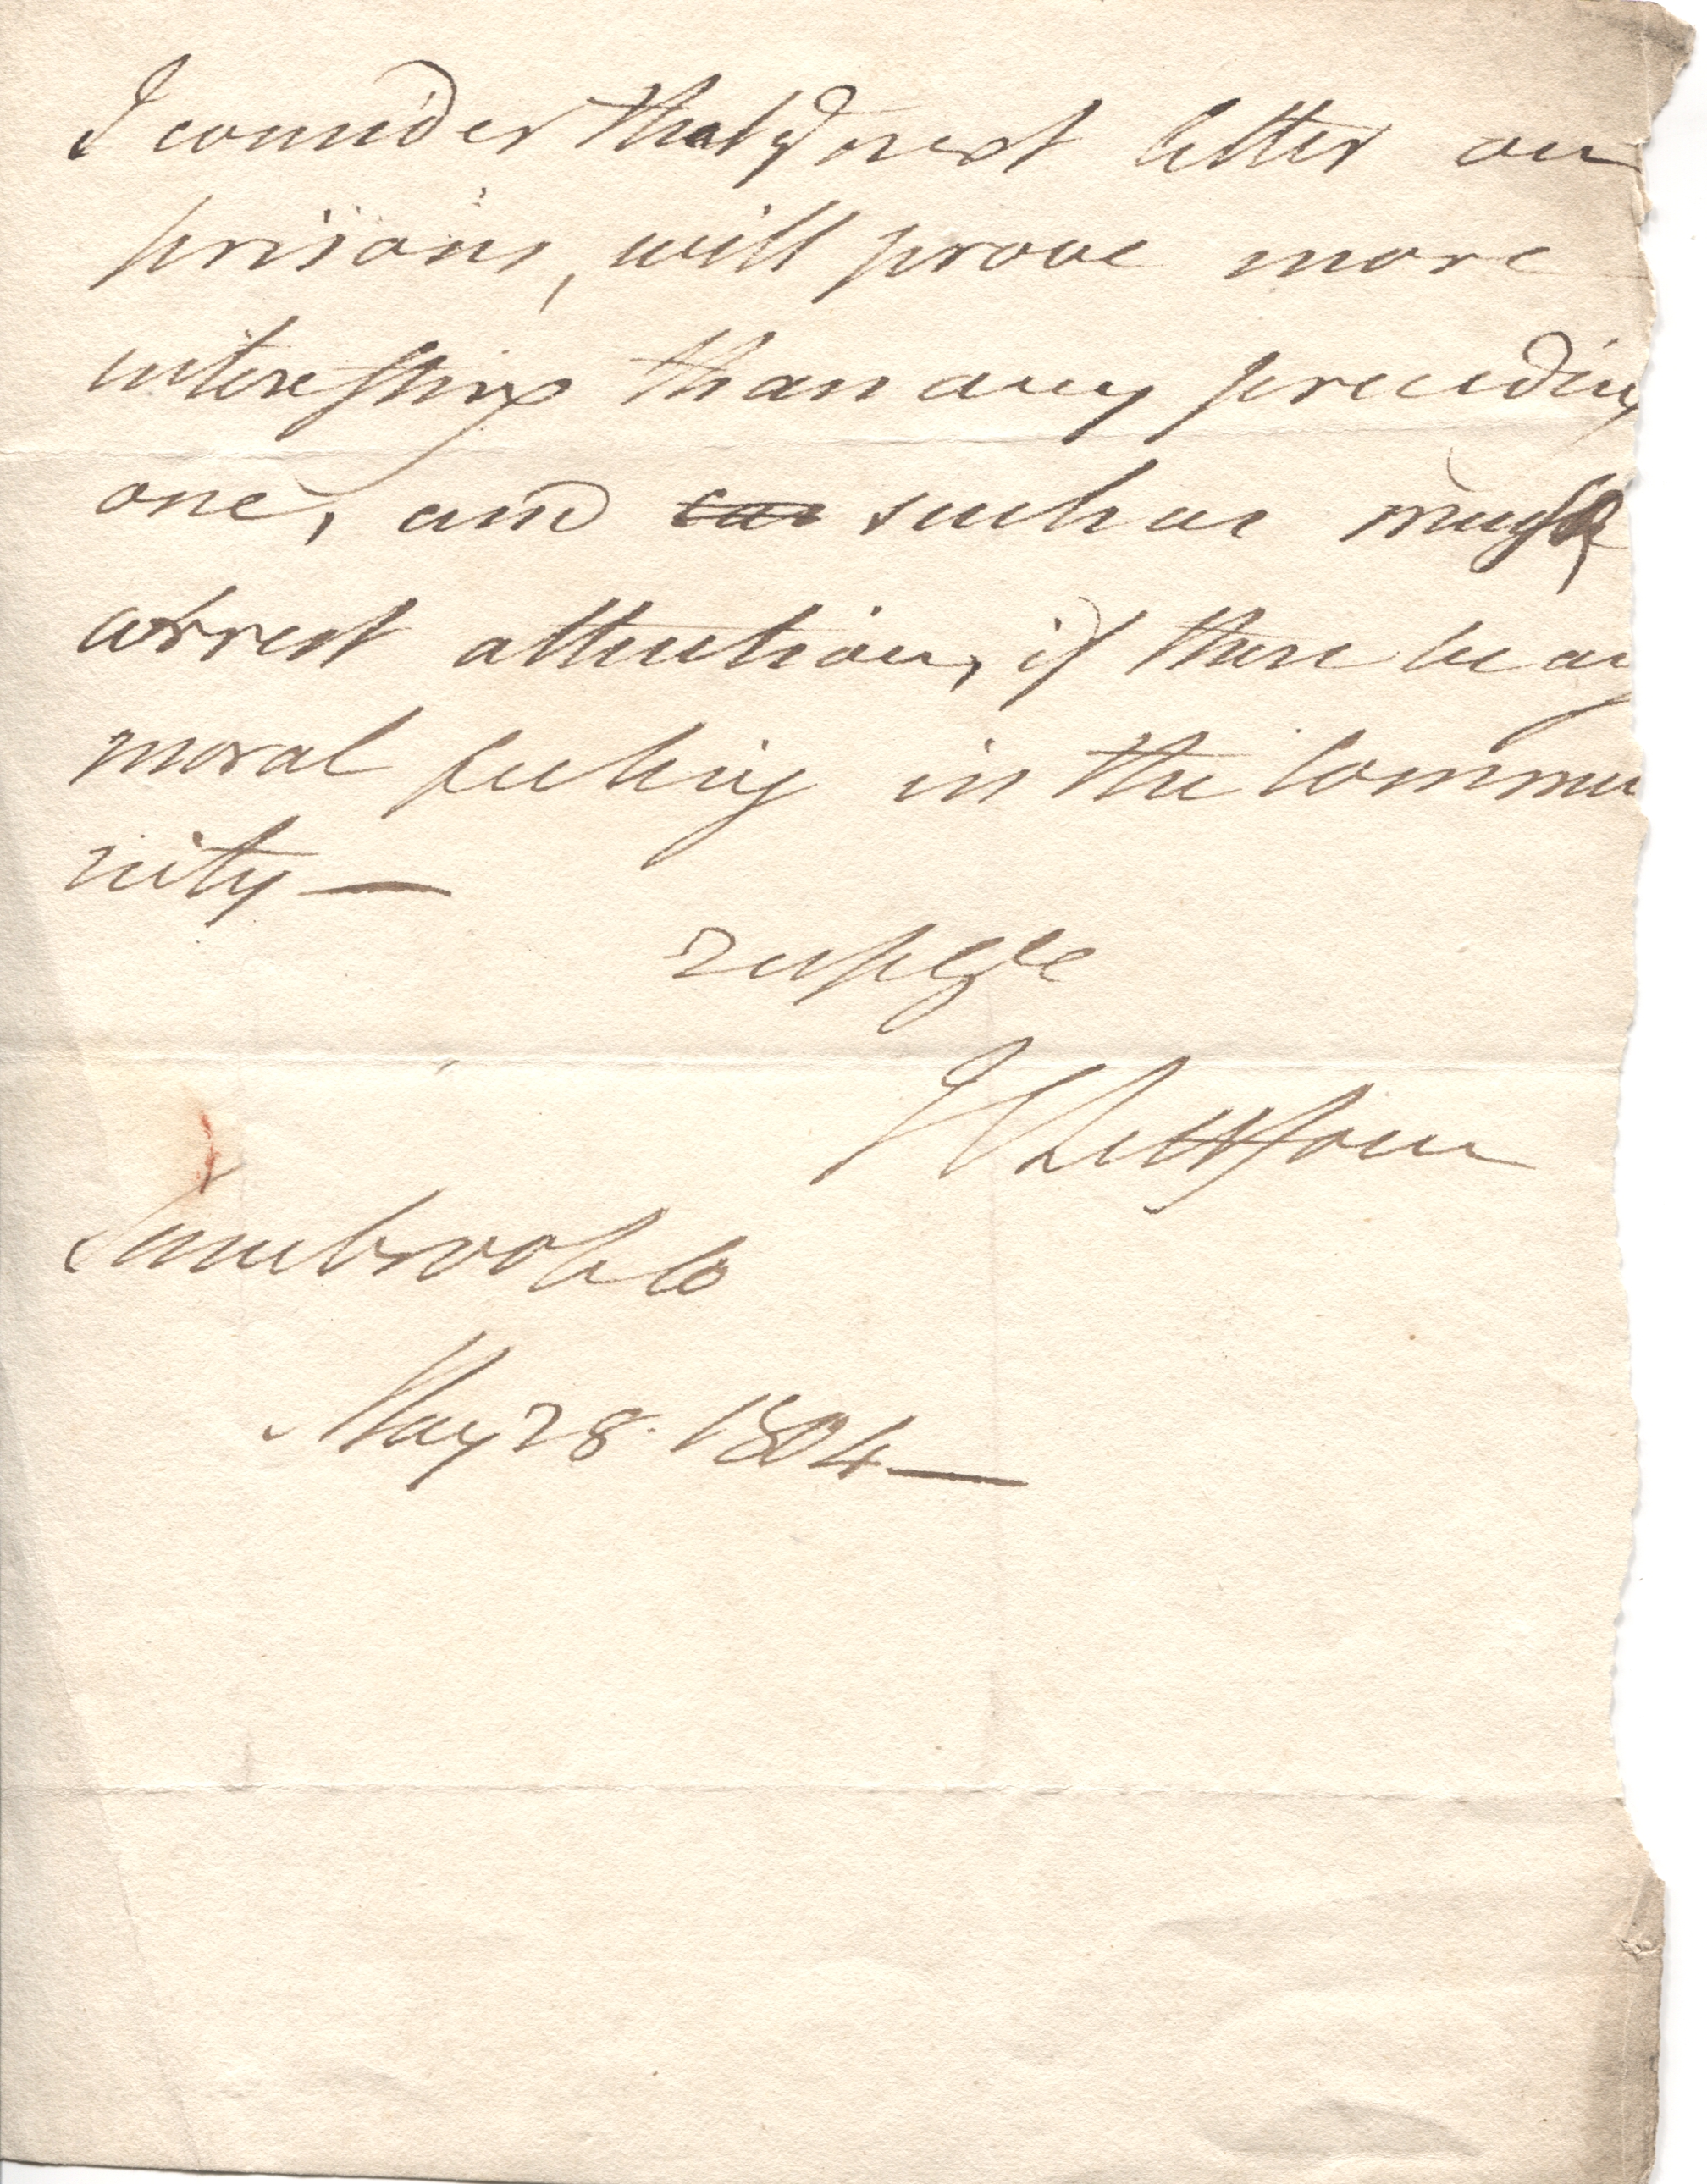 I consider that yr next letter on
prisons, will prove more
interesting than any preceding
one, and such as must
arrest attention, if there be any
moral feeling in the Commu
nity—
J C Lettsom
Sambrook Co
May 28. 1804—